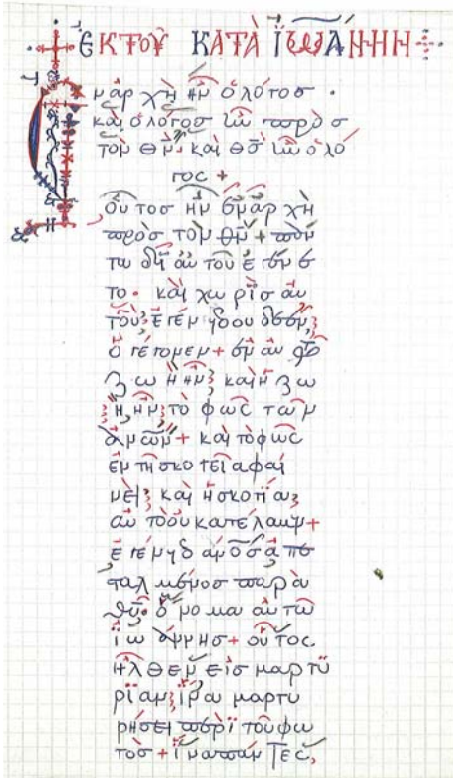 ἐκ τοῦ κατὰ ϊωάννην
Ἐν ἀρχῆ ἦν ὁ λόγοσ.
καὶ ὁ λόγοσ ἦν πρὸσ
τὸν θν. καὶ θσ ἦν ὁ λό
γος +
οὗτοσ ἦν ἐν ἀρχῆ
πρὸσ τὸν θν + πάν
τα δι' αὐτοῦ ἐγένε
το. καὶ χωρῒσ αὐ
τοῦ, ἐγένετο οὐδὲ ἕν,
ὃ γέγονεν + ἐν αὐτῶ
ζωὴ ἦν, καὶ ἡ ζω
ὴ, ἦν, τὸ φῶς τῶν
ἀνων + καὶ τὸ φῶς
ἐν τῆ σκοτεία φαί
νει, καὶ ἡ σκοτία,
αὐτὸ οὐ κατέλαβεν +
ἐγένετο ἀνοσ ἀπε
σταλμένοσ παρὰ
θῦ. ὄνομα αὐτῶ
ϊωάννησ + οὗτος.
ἦλθεν εἰσ μαρτυ
ρίαν, ἵνα μαρτυ
ρήσει περῒ τοῦ φω
τόσ + ἵνα πάντες,